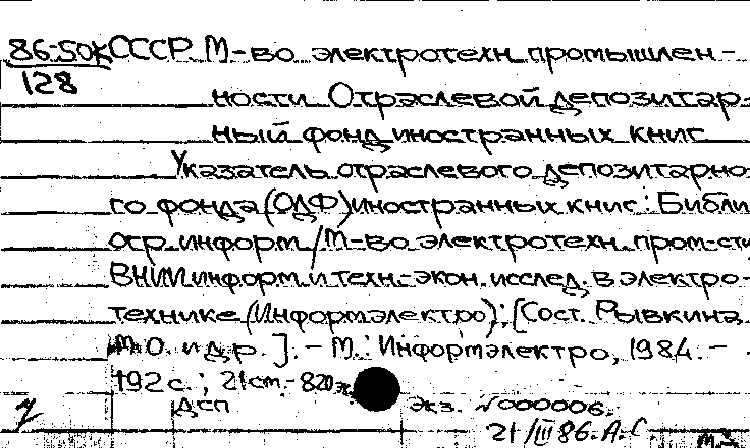 86-50к СССР. М-во электротехн. промышлен-
128
ности. Отраслевой депозитар-
ный фонд иностранных книг
Указатель отраслевого депозитарно-
го фонда (ОДФ) иностранных книг: Библи-
огр. информ / М-во электротехн. пром-сти
ВНИИ информ. и техн.-экон. исслед. в электро-
технике (Информэлектро); [Сост. Рывкина
М.О. и др.]. - М.: Информэлектро, 1984. -
192 с.; 21 см. - 820 э
ДСП экз. № 000006.
21/III 86.